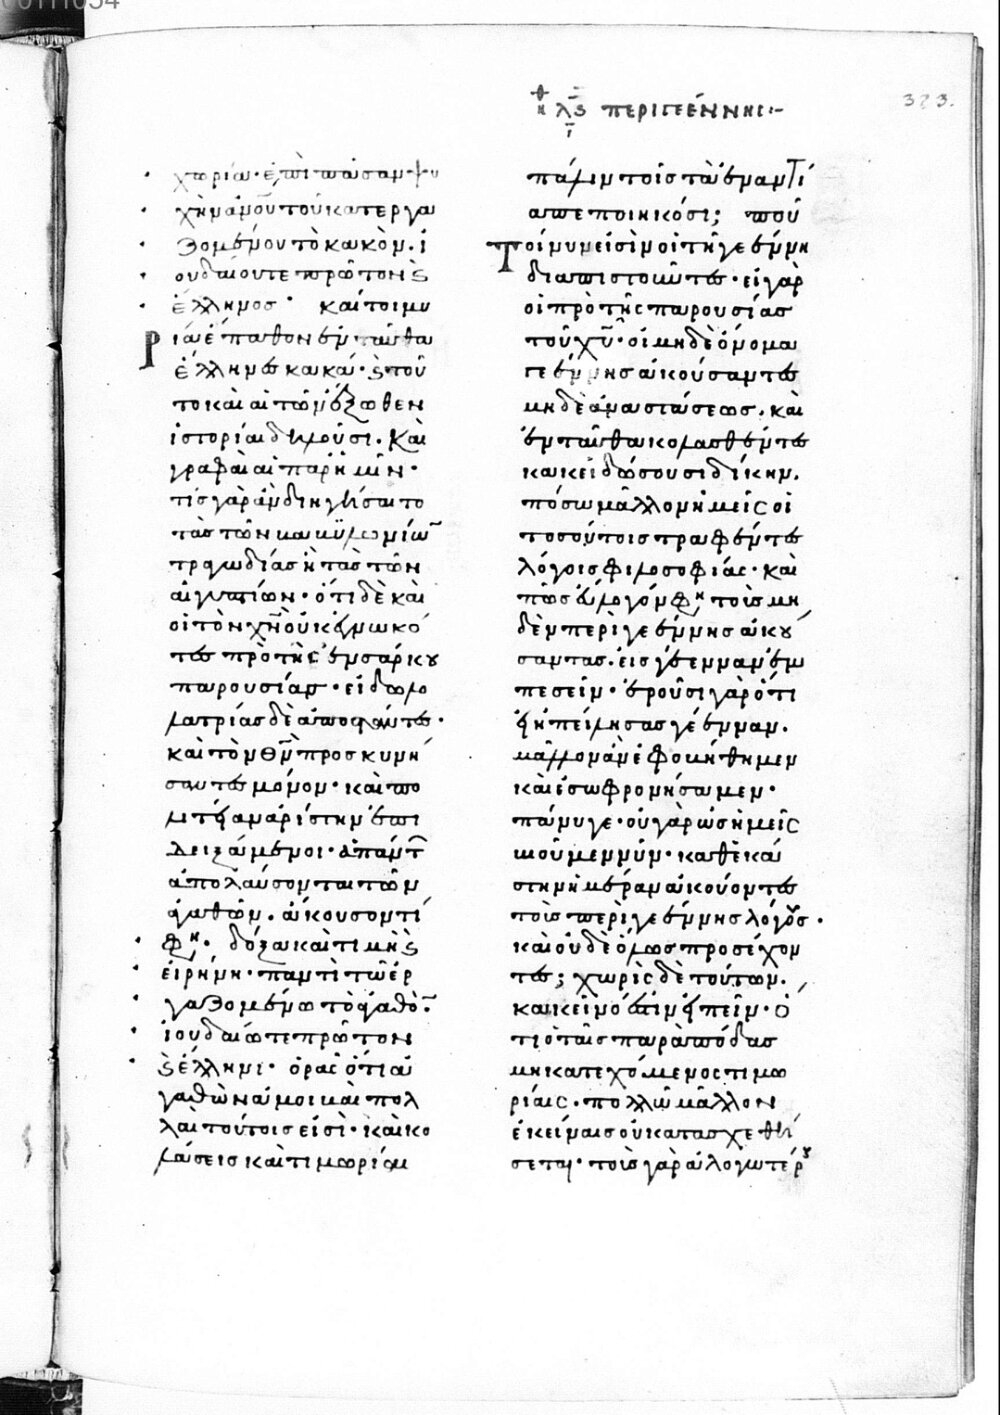 λς περὶ γεέννης:-
323.
χωρία· ἐπὶ πᾶσαν ψυ
χὴν ἀνου τοῦ κατεργα
ζομένου τὸ κακόν· ἰ
ουδαίου τε πρῶτον καὶ
ἕλληνος· καίτοι μυ
ρία ἔπαθον ἐνταῦθα
ἕλληνες κακά· καὶ τοῦ
το καὶ αἱ τῶν ἔξωθεν
ἱστορίαι δηλοῦσι. καὶ
γραφαὶ αἱ παρ' ἡμῖν·
τίς γὰρ ἂν διηγήσαιτο
τὰς τῶν βαβυλωνίων
τραγωδίας ἢ τὰς τῶν
αἰγυπτίων· ὅτι δὲ καὶ
οἱ τὸν χν οὐκ ἐγνωκό
τες πρὸ τῆς ἐνσάρκου
παρουσίας· εἰδωλο
λατρίας δὲ ἀποστάντες·
καὶ τὸν θν προσκυνή
σαντες μόνον· καὶ πο
λιτείαν ἀρίστην ἐπι
δειξάμενοι· ἁπάντων
ἀπολαύσονται τῶν
ἀγαθῶν. ἄκουσον τί
φη. δόξα καὶ τιμὴ καὶ
εἰρήνη· παντὶ τῶ ἐρ
γαζομένω τὸ ἀγαθόν.
ἰουδαίω τε πρῶτον
καὶ ἕλληνι· ὁρᾶς ὅτι ἀ
γαθῶν ἀμοιβαὶ πολ
λαὶ τούτοις εἰσὶ· καὶ κο
λάσεις καὶ τιμωρίαι
πάλιν τοῖς τὰ ἐναντί
α πεποιηκόσι; ποῦ
τοίνυν εἰσὶν οἱ τῆ γεέννη
διαπιστοῦντες· εἰ γὰρ
οἱ πρὸ τῆς παρουσίας
τοῦ χυ· οἱ μηδὲ ὄνομα
γεέννης ἀκούσαντες
μηδὲ ἀναστάσεως. καὶ
ἐνταῦθα κολασθέντες
κἀκεῖ δώσουσι δίκην.
πόσω μᾶλλον ἡμεῖς οἱ
τοσούτοις τραφέντες
λόγοις φιλοσοφίας· καὶ
πῶς εὔλογόν φη τοὺς μη
δὲν περὶ γεέννης ἀκού
σαντας. εἰς γέενναν ἐμ
πεσεῖν· ἐροῦσι γὰρ ὅτι
εἰ ἠπείλησας γέενναν.
μᾶλλον ἂν ἐφοβήθημεν
καὶ ἐσωφρονήσαμεν.
πάνυ γε· οὐ γὰρ ὡς ἡμεῖς
βιοῦμεν νῦν· καθ' ἑκά
στην ἡμέραν ἀκούοντες
τοὺς περὶ γεέννης λόγους.
καὶ οὐδὲ ὅλως προσέχον
τες; χωρὶς δὲ τούτων.
κἀκεῖνό ἐστιν εἰπεῖν· ὅ
τι ὁ ταῖς παρὰ πόδας
μὴ κατεχόμενος τιμω
ρίαις· πολλῶ μᾶλλον
ἐκείναις οὐ κατασχεθή
σεται· τοὺς γὰρ ἀλογωτέρους